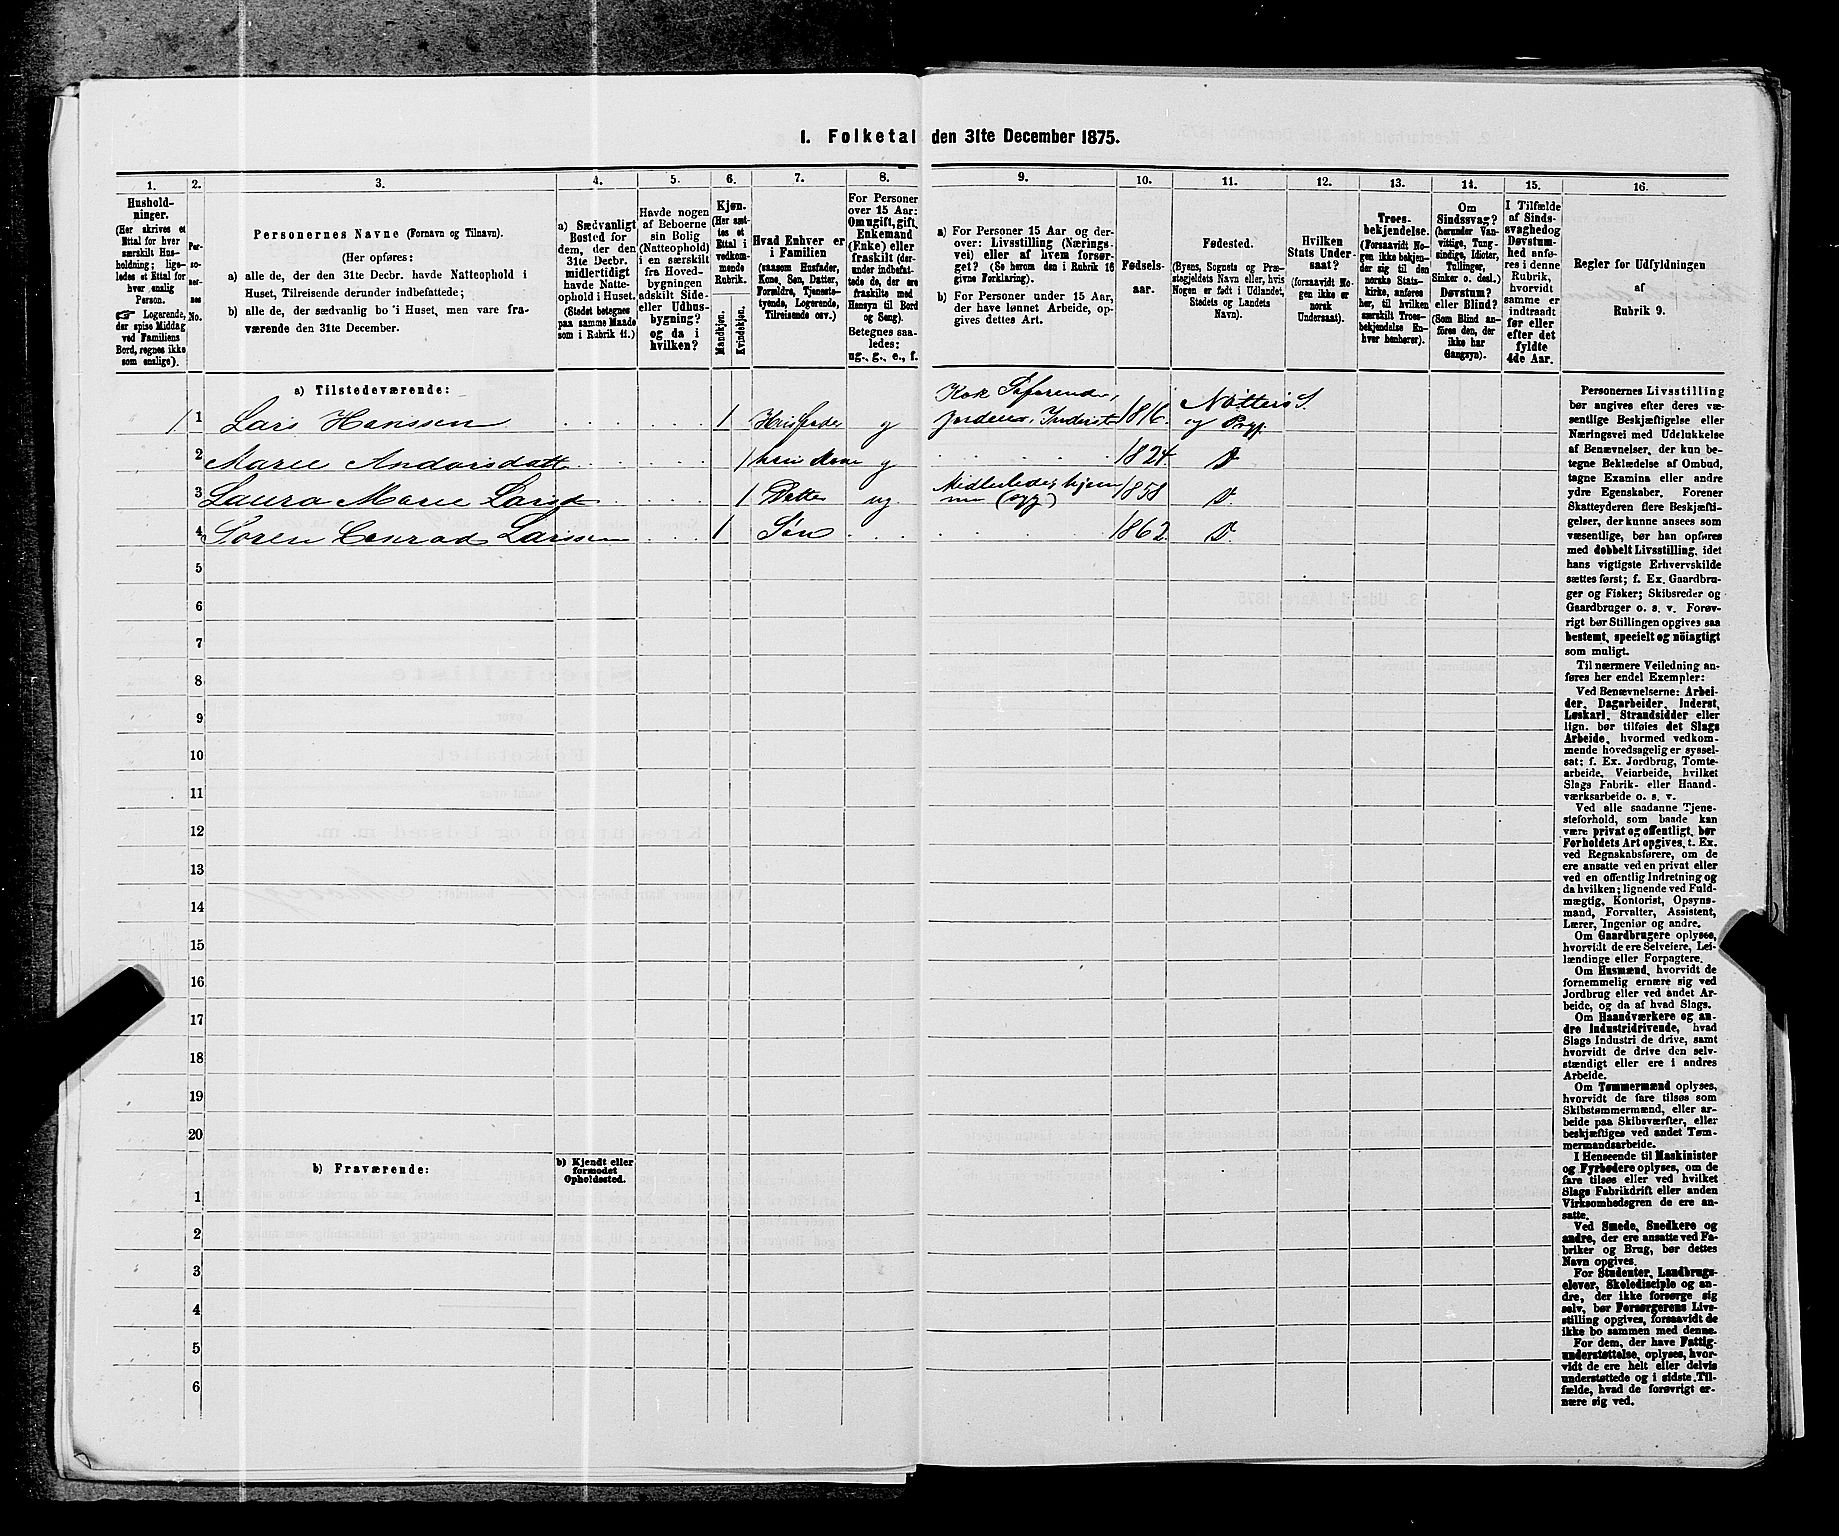 1. Folketal den 31te December 1875.
1.
2.
3.
4.
5.
6.
7.
8.
9.
10.
11.
12.
13.
14.
15.
16.
Hushold-
ninger.
(Her skrives et
Ettal for hver
særskilt Hus-
holdning; lige-
ledes et Ettal for
hver enslig
Person.
☞ Logerende,
der spise Middag
ved Familiens
Bord, regnes ikke
som enslige).
Per-
so-
ner-
nes
No.
Personernes Navne (Fornavn og Tilnavn).
(Her opføres:
a) alle de, der den 31te Decbr. havde Natteophold i
Huset, Tilreisende derunder indbefattede;
b) alle de, der sædvanlig bo i Huset, men vare fra-
værende den 31te December.
a) Sædvanligt
Bosted for
dem, der den
31te Decbr.
midlertidigt
havde Natte-
ophold i Huset.
(Stedet betegnes
paa samme Maade
som i Rubrik 11.)
Havde nogen
af Beboerne
sin Bolig
(Natteophold)
i en særskilt
fra Hoved-
bygningen
adskilt Side-
eller Udhus-
bygning?
og da i
hvilken?
Kjøn.
(Her sæt-
tes et
Ettal i
vedkom-
mende
Rubrik.
Mandkjøn.
Kvindekjøn.
Hvad Enhver er
i Familien
(saasom Husfader,
Kone, Søn, Datter,
Forældre, Tjeneste-
tyende, Logerende,
Tilreisende osv.)
For Personer
over 15 Aar:
Om ugift, gift,
Enkemand
(Enke) eller
fraskilt (der-
under indbefat-
tede de, der ere
fraskilte med
Hensyn til Bord
og Seng).
Betegnes saa-
ledes:
ug., g., e., f.
a) For Personer 15 Aar og der-
over: Livsstilling (Nærings-
vei) eller af hvem forsør-
get? (Se herom den i Rubrik 16
givne Forklaring).
b) For Personer under 15 Aar,
der have lønnet Arbeide, op-
gives dettes Art.
Fødsels-
aar.
Fødested.
(Byens, Sognets og Præ-
stegjeldets Navn eller, hvis
Nogen er født i Udlandet,
Stedets og Landets
Navn).
Hvilken
Stats Under-
saat?
(forsaavidt No-
gen ikke er
norsk
Undersaat).
Troes-
bekjendelse.
(Forsaavidt No-
gen ikke bekjen-
der sig til den
norske Stats-
kirke, anføres
her, til hvilken
særskilt Troes-
bekjendelse En-
hver henhører).
Om
Sindssvag?
(herunder Van-
vittige, Tung-
sindige, Idioter,
Tullinger,
Sinker o. desl.)
Døvstum?
eller Blind?
(Som Blind an-
føres den, der
ikke har
Gangsyn).
I Tilfælde
af Sinds-
svaghed og
Døvstum-
hed anfø-
res i denne
Rubrik,
hvorvidt
samme er
indtraadt
før eller
efter det
fyldte
4de Aar.
Regler for Udfyldningen
af
Rubrik 9.
a) Tilstedeværende:
1 1 Lars Hanssen 1 Husfader g Kok Søfarende, 1816. Nötterö S.
og Prgj.
2 Marie Andersdatt 1 hans Kone g 1824 D
3 Laura Marie Larsd 1 Datter ug 1858 D.
4 Sören Conrad Larssen 1 Søn 1862. D.
5
6
7
8
9
10
11
12
13
14
15
16
17
18
19
20
b) Fraværende:
b) Kjendt eller
formodet
Opholdssted.
1
2
3
4
5
6
Personernes Livsstilling
bør angives efter deres væ-
sentlige Beskjæftigelse eller
Næringsvei med Udelukkelse
af Benævnelser, der kun be-
tegne Beklædelse af Ombud,
tagne Examina eller andre
ydre Egenskaber. Forener
Skatteyderen flere Beskjæfti-
gelser, der kunne ansees som
væsentlige, bør han opføres
med dobbelt Livsstilling, idet
hans vigtigste Erhvervskilde
sættes først; f. Ex. Gaardbru-
ger og Fisker; Skibsreder og
Gaardbruger o. s. v. Forøv-
rigt bør Stillingen opgives saa
bestemt, specielt og nøiagtigt
som muligt.
Til nærmere Veiledning an-
føres her endel Exempler:
Ved Benævnelserne: Arbei-
der, Dagarbeider, Inderst,
Løskarl, Strandsidder eller
lign. bør tilføies det Slags
Arbeide, hvormed vedkom-
mende hovedsagelig er syssel-
sat; f. Ex. Jordbrug, Tomte-
arbeide, Veiarbeide, hvilket
Slags Fabrik- eller Haand-
værksarbeide o. s. v.
Ved alle saadanne Tjene-
steforhold, som baade kan
være privat og offentligt, bør
Forholdets Art opgives, t. Ex.
ved Regnskabsførere, om de
ere ansatte ved en privat eller
ved en offentlig Indretning og
da hvilken; lignende ved Fuld-
mægtig, Kontorist, Opsyns-
mand, Forvalter, Assistent,
Lærer, Ingeniør og andre.
Om Gaardbrugere oplyses,
hvorvidt de ere Selveiere, Lei-
lændinge eller Forpagtere.
Om Husmænd, hvorvidt de
fornemmelig ernære sig ved
Jordbrug eller ved andet Ar-
beide, og da af hvad Slags.
Om Haandværkere og an-
dre Industridrivende, hvad
Slags Industri de drive, samt
hvorvidt de drive den selv-
stændigt eller ere i andres
Arbeide.
Om Tømmermænd oplyses,
hvorvidt de fare tilsøs som
Skibstømmermænd, eller ar-
beide paa Skibsværfter, eller
beskjæftiges ved andet Tøm-
mermandsarbeide.
I Henseende til Maskinister
og Fyrbødere oplyses, om de
fare tilsøs eller ved hvilket
Slags Fabrikdrift eller anden
Virksomhedsgren de ere an-
satte.
Ved Smede, Snedkere og
andre, der ere ansatte ved Fa-
briker og Brug, bør dettes
Navn opgives.
For Studenter, Landbrugs-
elever, Skoledisciple og an-
dre, der ikke forsørge sig
selv, bør Forsørgerens Livs-
stilling opgives, forsaavidt de
ikke bo sammen med denne.
For dem, der have Fattig-
understøttelse, oplyses, hvor-
vidt de ere helt eller delvis
understøttede og i sidste Til-
fælde, hvad de forøvrigt er-
nære sig ved.